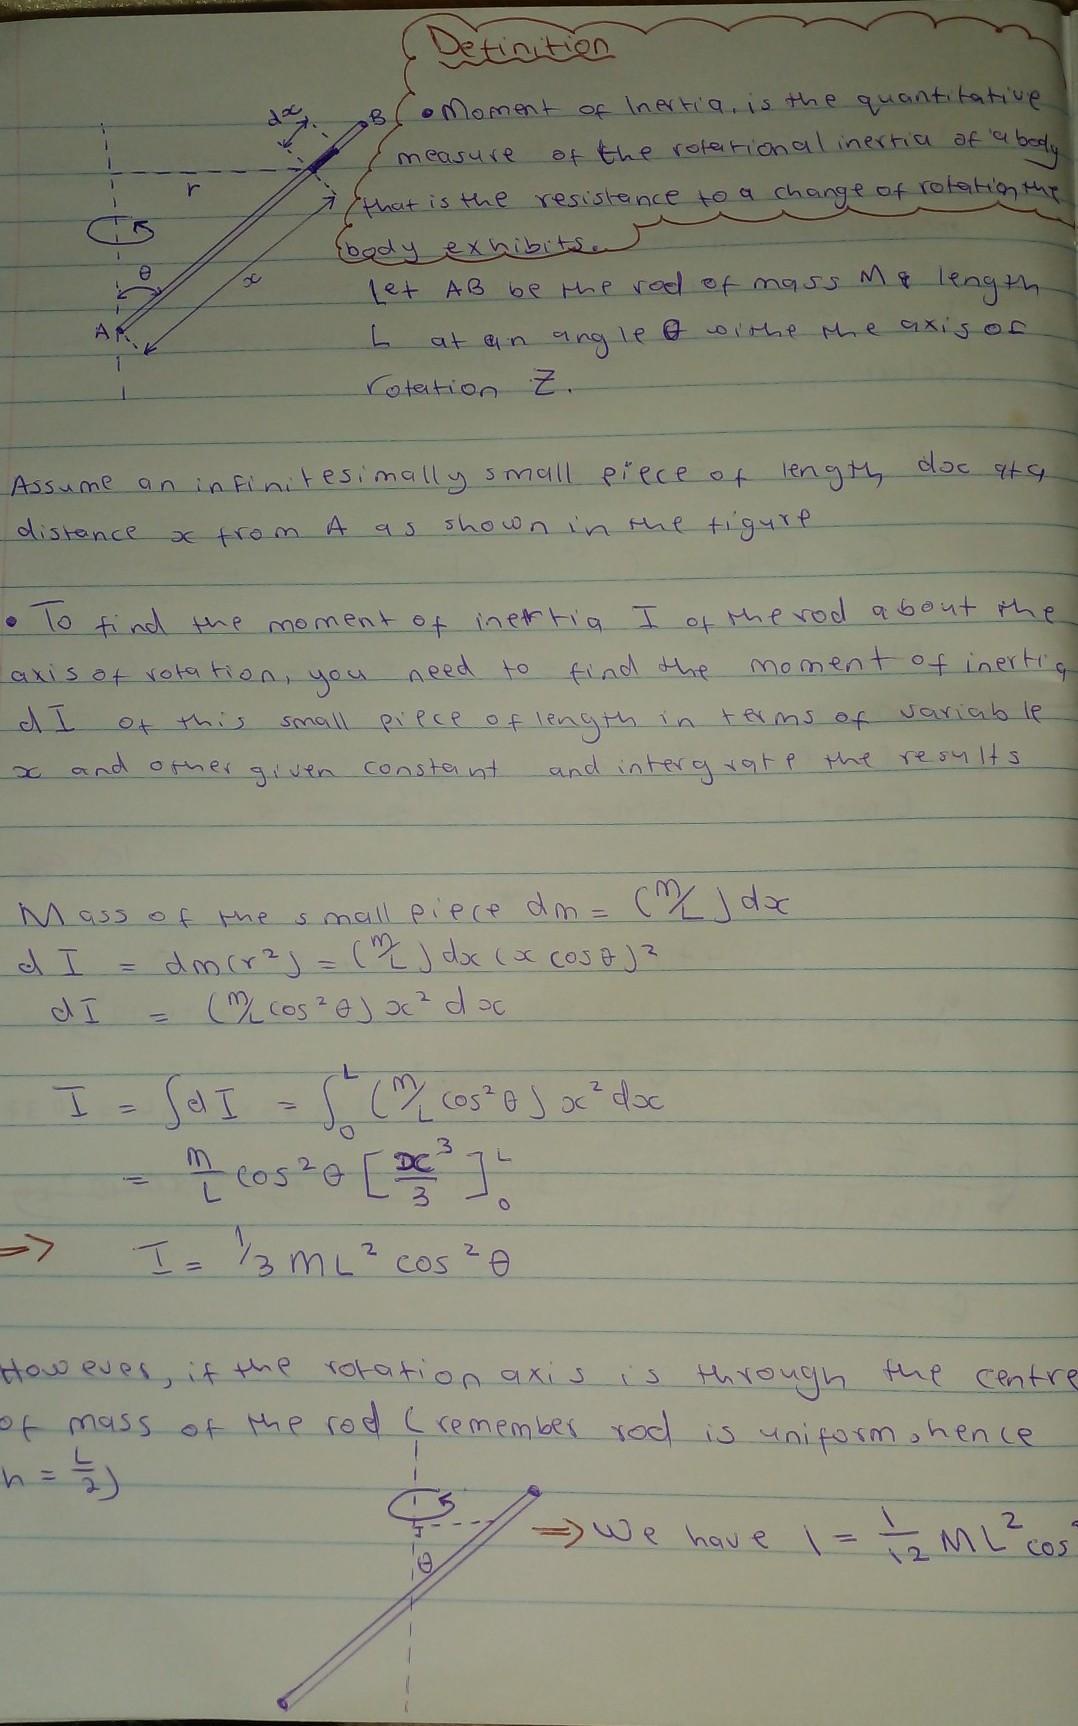 Definition
• Moment of Inertia, is the quantitative
measure of the rotational inertia of a body
that is the resistance to a change of rotation the
body exhibits.
dx
B
r
θ
x
A
Let AB be the rod of mass M & length
L at an angle θ withe the axis of
rotation Z.
Assume an infinitesimally small piece of length dx at a
distance x from A as shown in the figure
• To find the moment of inertia I of the rod about the
axis of rotation, you need to find the moment of inertia
dI of this small piece of length in terms of variable
x and other given constant and intergrate the results
Mass of the small piece dm = (m/L) dx
dI = dm(r²) = (m/L) dx (x cosθ)²
dI = (m/L cos²θ) x² dx
I = ∫dI = ∫₀ᴸ (m/L cos²θ) x² dx
= m/L cos²θ [x³/3]₀ᴸ
=> I = 1/3 ML² cos²θ
However, if the rotation axis is through the centre
of mass of the rod (remember rod is uniform, hence
h = L/2)
θ
=> We have I = 1/12 ML² cos